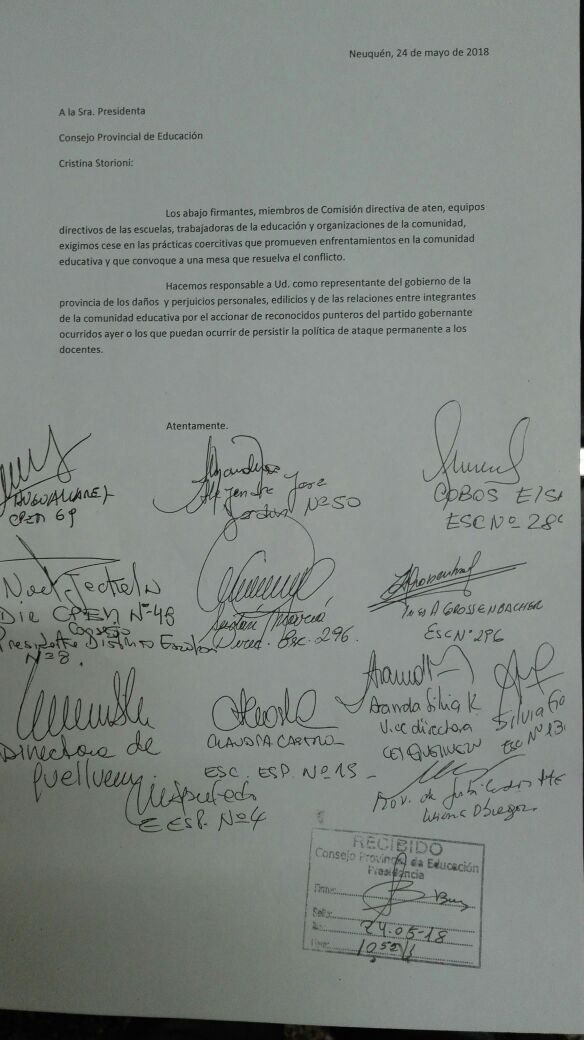 Neuquén, 24 de mayo de 2018
A la Sra. Presidenta
Consejo Provincial de Educación
Cristina Storioni:
Los abajo firmantes, miembros de Comisión directiva de aten, equipos
directivos de las escuelas, trabajadoras de la educación y organizaciones de la comunidad,
exigimos cese en las prácticas coercitivas que promueven enfrentamientos en la comunidad
educativa y que convoque a una mesa que resuelva el conflicto.
Hacemos responsable a Ud. como representante del gobierno de la
provincia de los daños y perjuicios personales, edilicios y de las relaciones entre integrantes
de la comunidad educativa por el accionar de reconocidos punteros del partido gobernante
ocurridos ayer o los que puedan ocurrir de persistir la política de ataque permanente a los
docentes.
Atentamente.
CPEM 69
Nº 50
COBOS
ESC Nº
Die CPEM Nº 48
Consejo
Presidente Distrito Escolar
Nº 8
Direct. Esc. 296
GROSSENBACHER
ESC Nº 296
Directora de
CLAUDIA CASTRO
ESC. ESP. Nº 15
EESP. Nº 4
Aranda Silvia K
Vice directora
Silvia
Esc Nº 13
RECIBIDO
Consejo Provincial de Educación
Presidencia
Firma:
24-05-18
Hora: 10